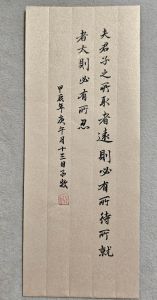 夫君子之所取者遠則必有所待所就
者大則必有所忍
甲辰年庚午月十三日子牧